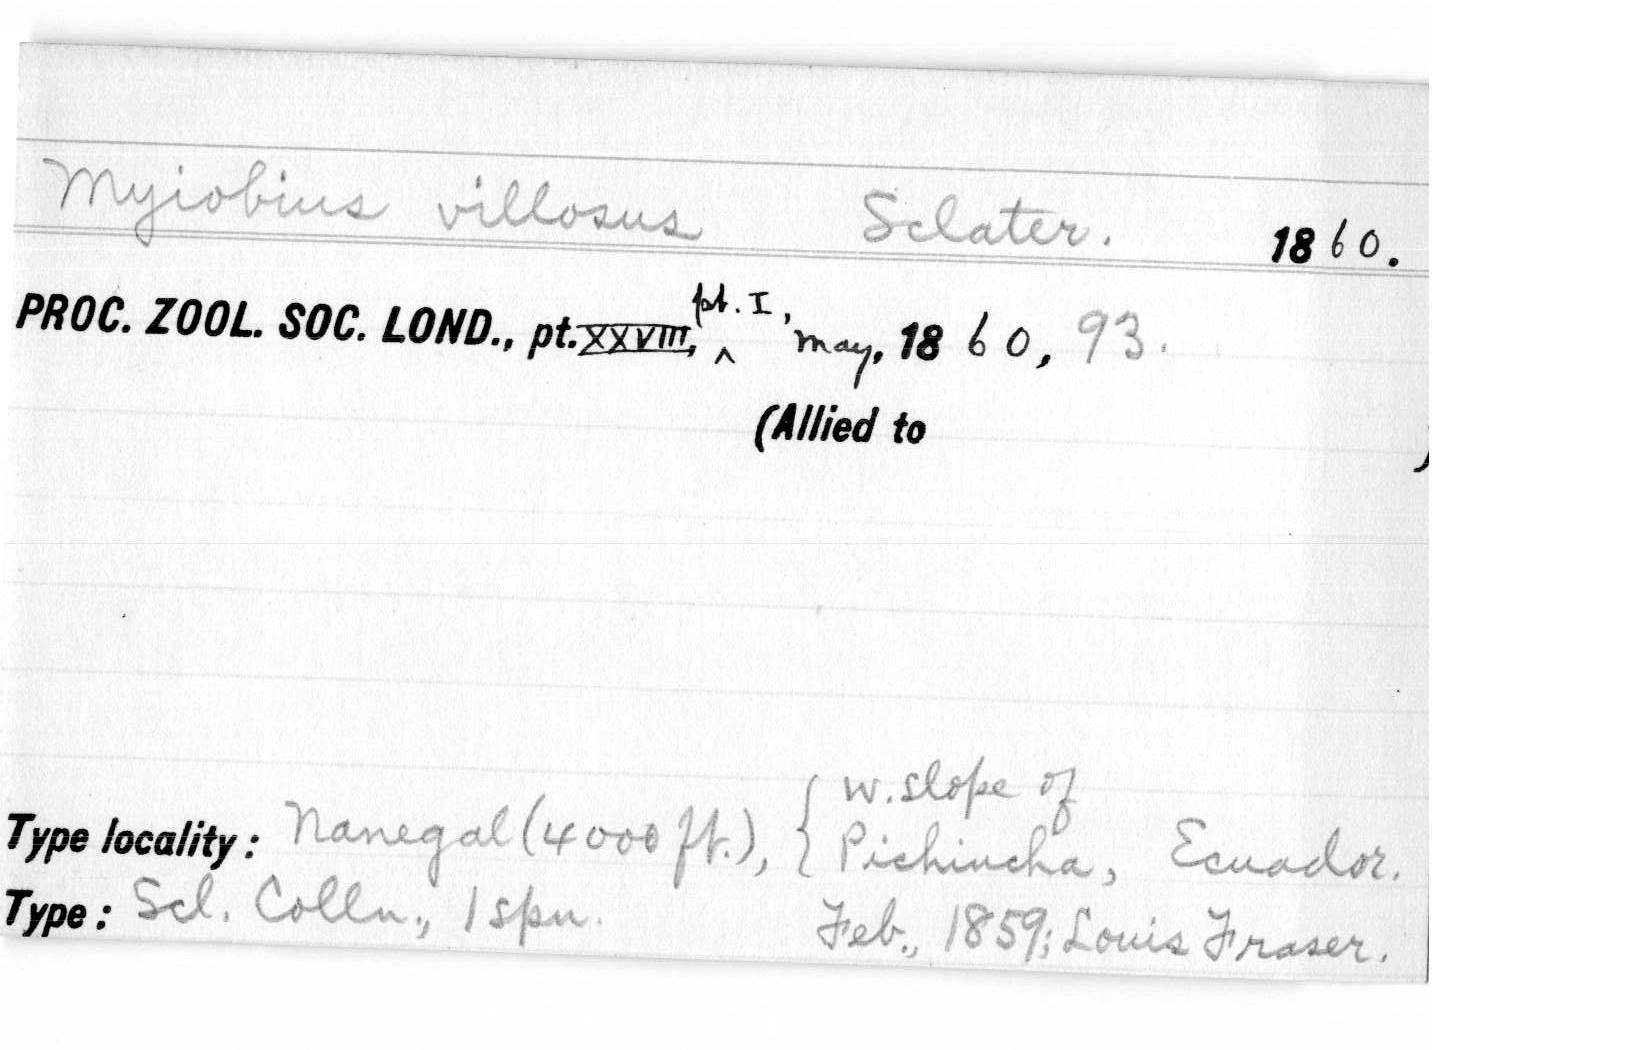 Myiobius villosus Sclater. 1860.
PROC. ZOOL. SOC. LOND., pt. XXVIII, pt. I, May, 1860, 93.
(Allied to )
Type locality: Nanegal (4000 ft.), { W. slope of
Pichincha, Ecuador.
Type: Scl. Colln., 1 spn. Feb., 1859; Louis Fraser.